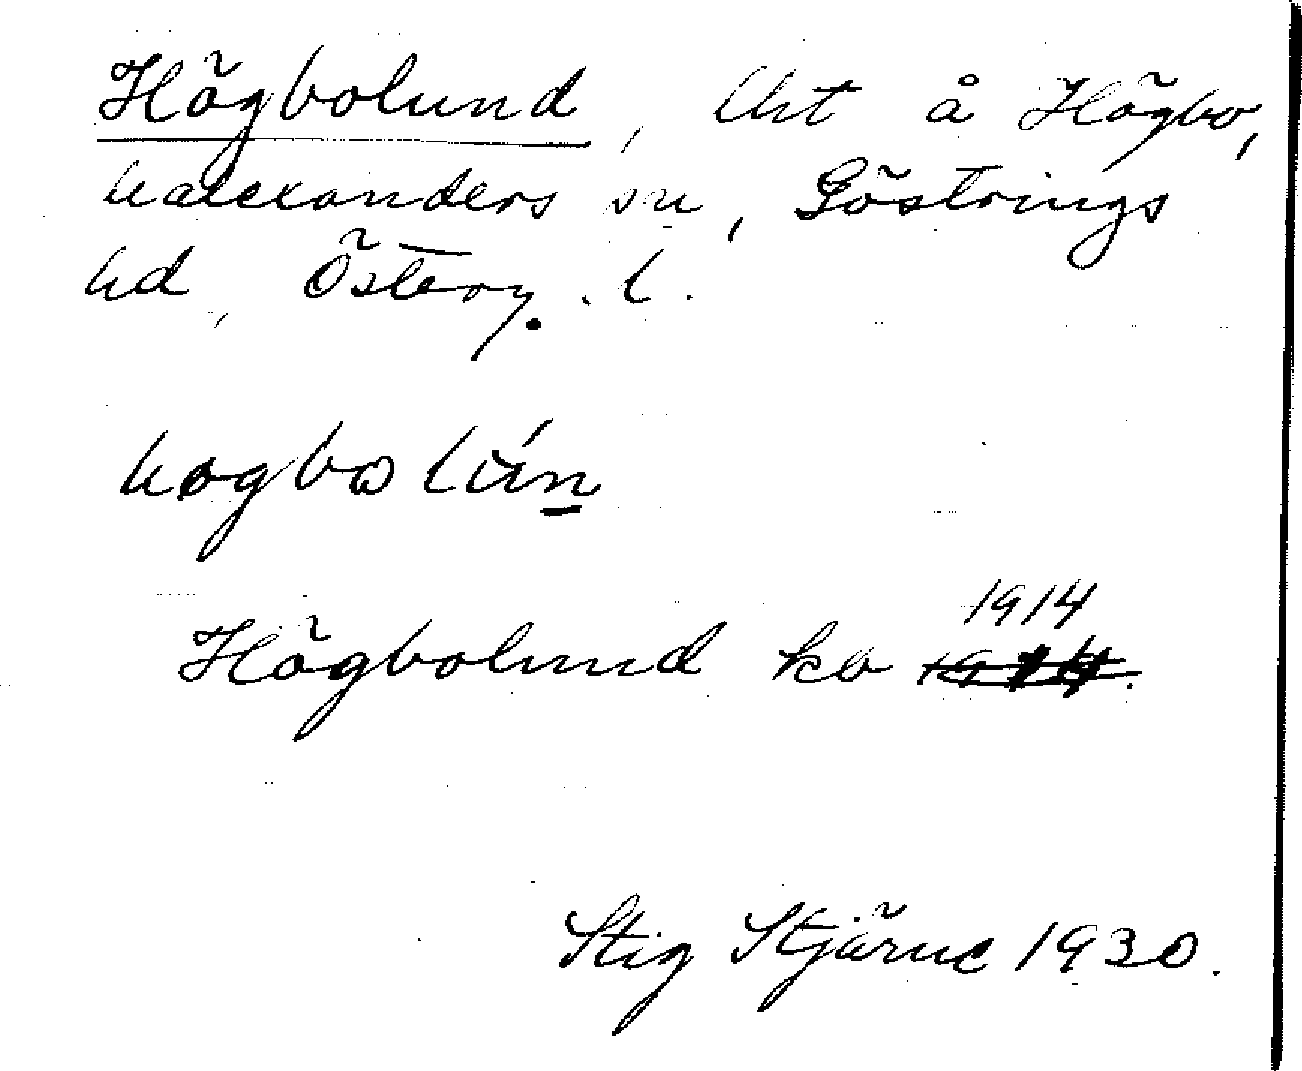 Högbolund, lht å Högbo,
Walexanders sn, Göstrings
hd, Österg. l.
høgbω lún
Högbolund ko 1914
Stig Stjärne 1930.